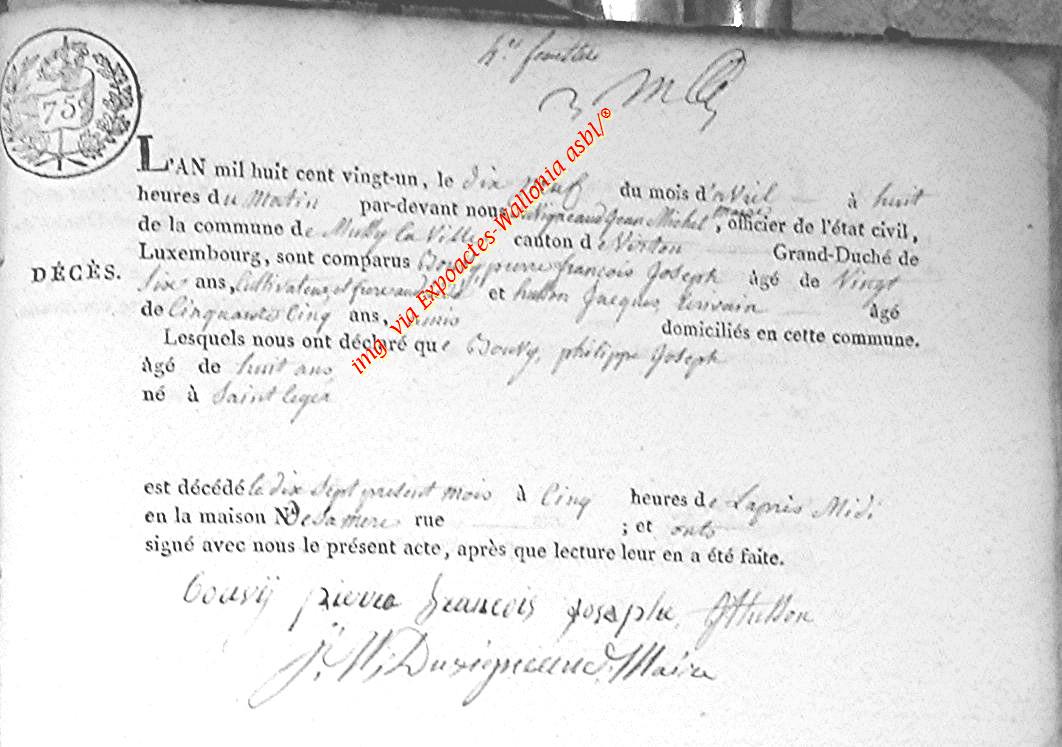 75
L'AN mil huit cent vingt-un, le dix neuf du mois d'avril à huit
heures du Matin par-devant nous Duvigneaud Jean Michel, officier de l'état civil,
de la commune de Mussy la Ville canton de Virton Grand-Duché de
DÉCÈS.
Luxembourg, sont comparus Bouvy pierre françois Joseph âgé de Vingt
Six ans, Cultivateur, et frere et husson Jacques, âgé
de Cinquante Cinq ans, domiciliés en cette commune.
Lesquels nous ont déclaré que Bouvy, philippe Joseph
âgé de huit ans
né à Saint leger
est décédé le dix Sept présent mois à Cinq heures de L'après Midi
en la maison N° de Sa mere rue ; et onts
signé avec nous le présent acte, après que lecture leur en a été faite.
bouvÿ pierre françois josephe JHusson
J. M. Duvigneaud. Maire
img via Expoactes-Wallonia asbl/®